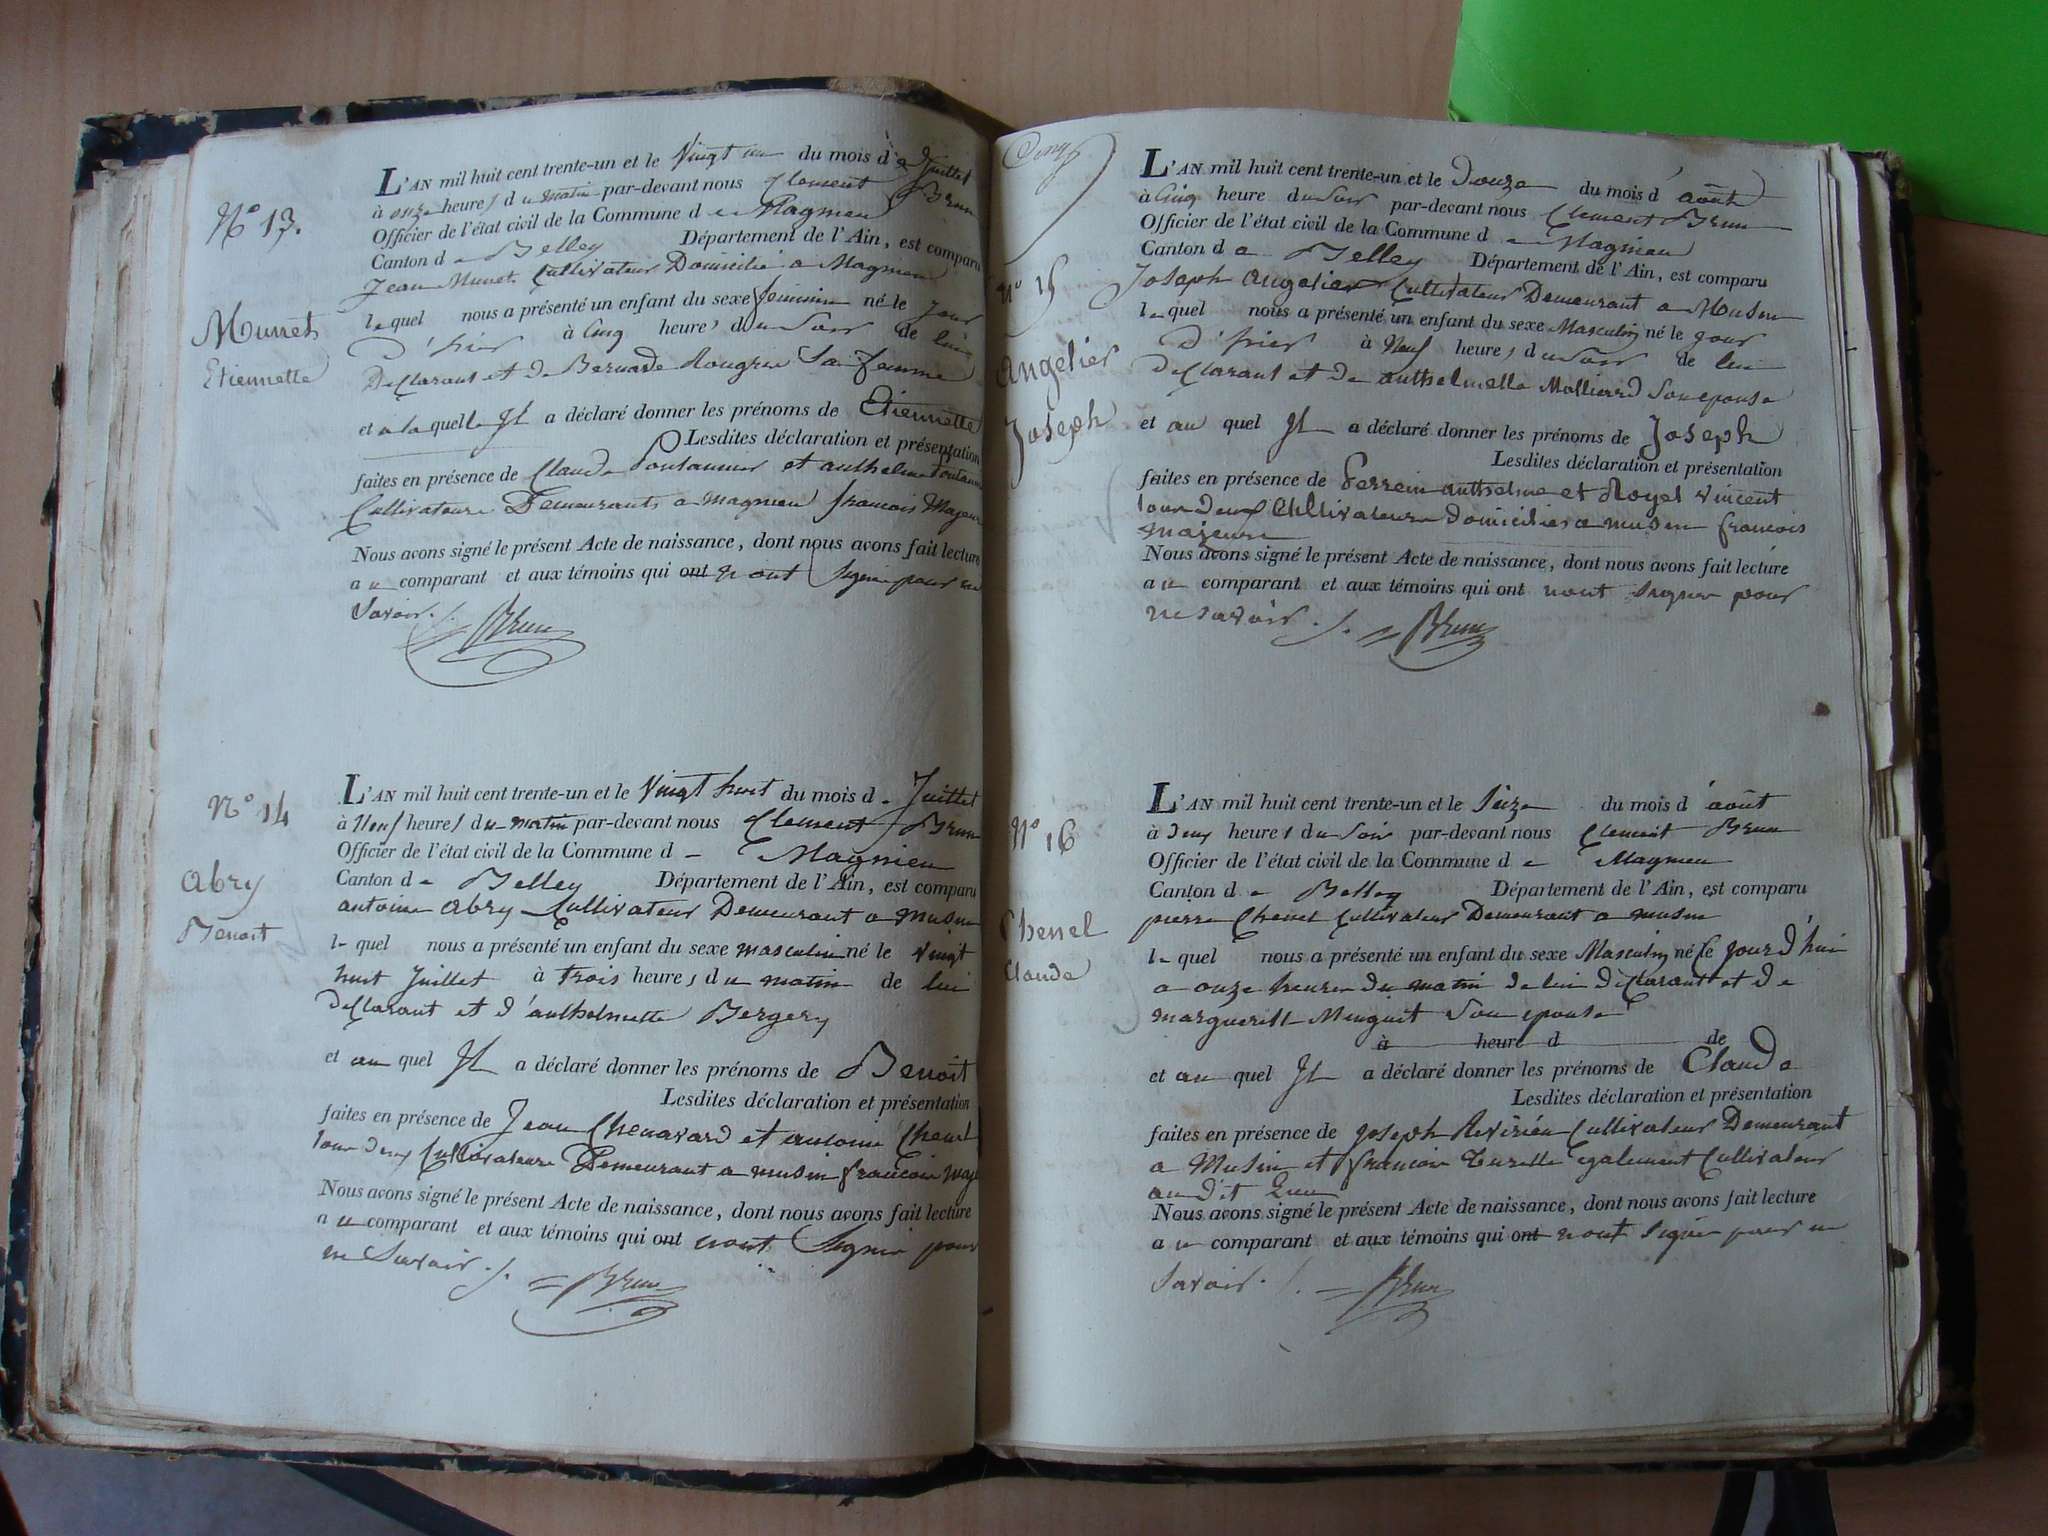 N° 13.
Munet
Etiennette
L'AN mil huit cent trente-un et le Vingt un du mois de Juillet
à onze heures du matin par-devant nous Clement Brun
Officier de l'état civil de la Commune de Magnieu
Canton de Belley Département de l'Ain, est comparu
Jean Munet Cultivateur Domicilié a Magnieu
lequel nous a présenté un enfant du sexe feminin né le Jour
D'hier à Cinq heures du Soir de lui
Declarant et de Bernarde Sa femme
et a laquelle Il a déclaré donner les prénoms de Etiennette
Lesdites déclaration et présentation
faites en présence de Claude et anthelme
Cultivateurs Demeurants a magnieu francois Majeurs
Nous avons signé le présent Acte de naissance, dont nous avons fait lecture
au comparant et aux témoins qui ont n'ont Signer pour ne
Savoir ./. Brun
N° 14
Abry
Benoit
L'AN mil huit cent trente-un et le Vingt huit du mois de Juillet
à Neuf heures du matin par-devant nous Clement Brun
Officier de l'état civil de la Commune de Magnieu
Canton de Belley Département de l'Ain, est comparu
antoine Abry Cultivateur Demeurant a Musin
lequel nous a présenté un enfant du sexe masculin né le Vingt
huit Juillet à trois heures du matin de lui
declarant et d'anthelmette Bergery
et au quel Il a déclaré donner les prénoms de Benoit
Lesdites déclaration et présentation
faites en présence de Jean Chenavard et antoine Chenel
tous deux Cultivateurs Demeurant a musin francois maj
Nous avons signé le présent Acte de naissance, dont nous avons fait lecture
au comparant et aux témoins qui ont nont Signer pour
ne Savoir ./. Brun
Cinq
N° 15
Angelier
Joseph
L'AN mil huit cent trente-un et le Douze du mois d'août
à Cinq heure du Soir par-devant nous Clement Brun
Officier de l'état civil de la Commune de Magnieu
Canton de Belley Département de l'Ain, est comparu
Joseph Angelier Cultivateur Demeurant a Musin
lequel nous a présenté un enfant du sexe Masculin né le jour
d'hier à Neuf heures du Soir de lui
declarant et de anthelmette Son epouse
et au quel Il a déclaré donner les prénoms de Joseph
Lesdites déclaration et présentation
faites en présence de Perrein anthelme et Royet Vincent
tous deux Cultivateurs domiciliés a musin francois
majeurs
Nous avons signé le présent Acte de naissance, dont nous avons fait lecture
au comparant et aux témoins qui ont nont Signer pour
ne savoir ./. Brun
N° 16
Chenel
Claude
L'AN mil huit cent trente-un et le Seize du mois d'août
à deux heures du Soir par-devant nous Clement Brun
Officier de l'état civil de la Commune de Magnieu
Canton de Belley Département de l'Ain, est comparu
pierre Chenel Cultivateur Demeurant a musin
lequel nous a présenté un enfant du sexe Masculin né le jour d'hui
a onze heures du matin de lui déclarant et de
margueritte Minguet Son epouse
à heure d de
et au quel Il a déclaré donner les prénoms de Claude
Lesdites déclaration et présentation
faites en présence de joseph Cultivateur Demeurant
a Musin et francois egalement Cultivateur
au dit Lieu
Nous avons signé le présent Acte de naissance, dont nous avons fait lecture
au comparant et aux témoins qui ont nont signer pour ne
Savoir. /. Brun